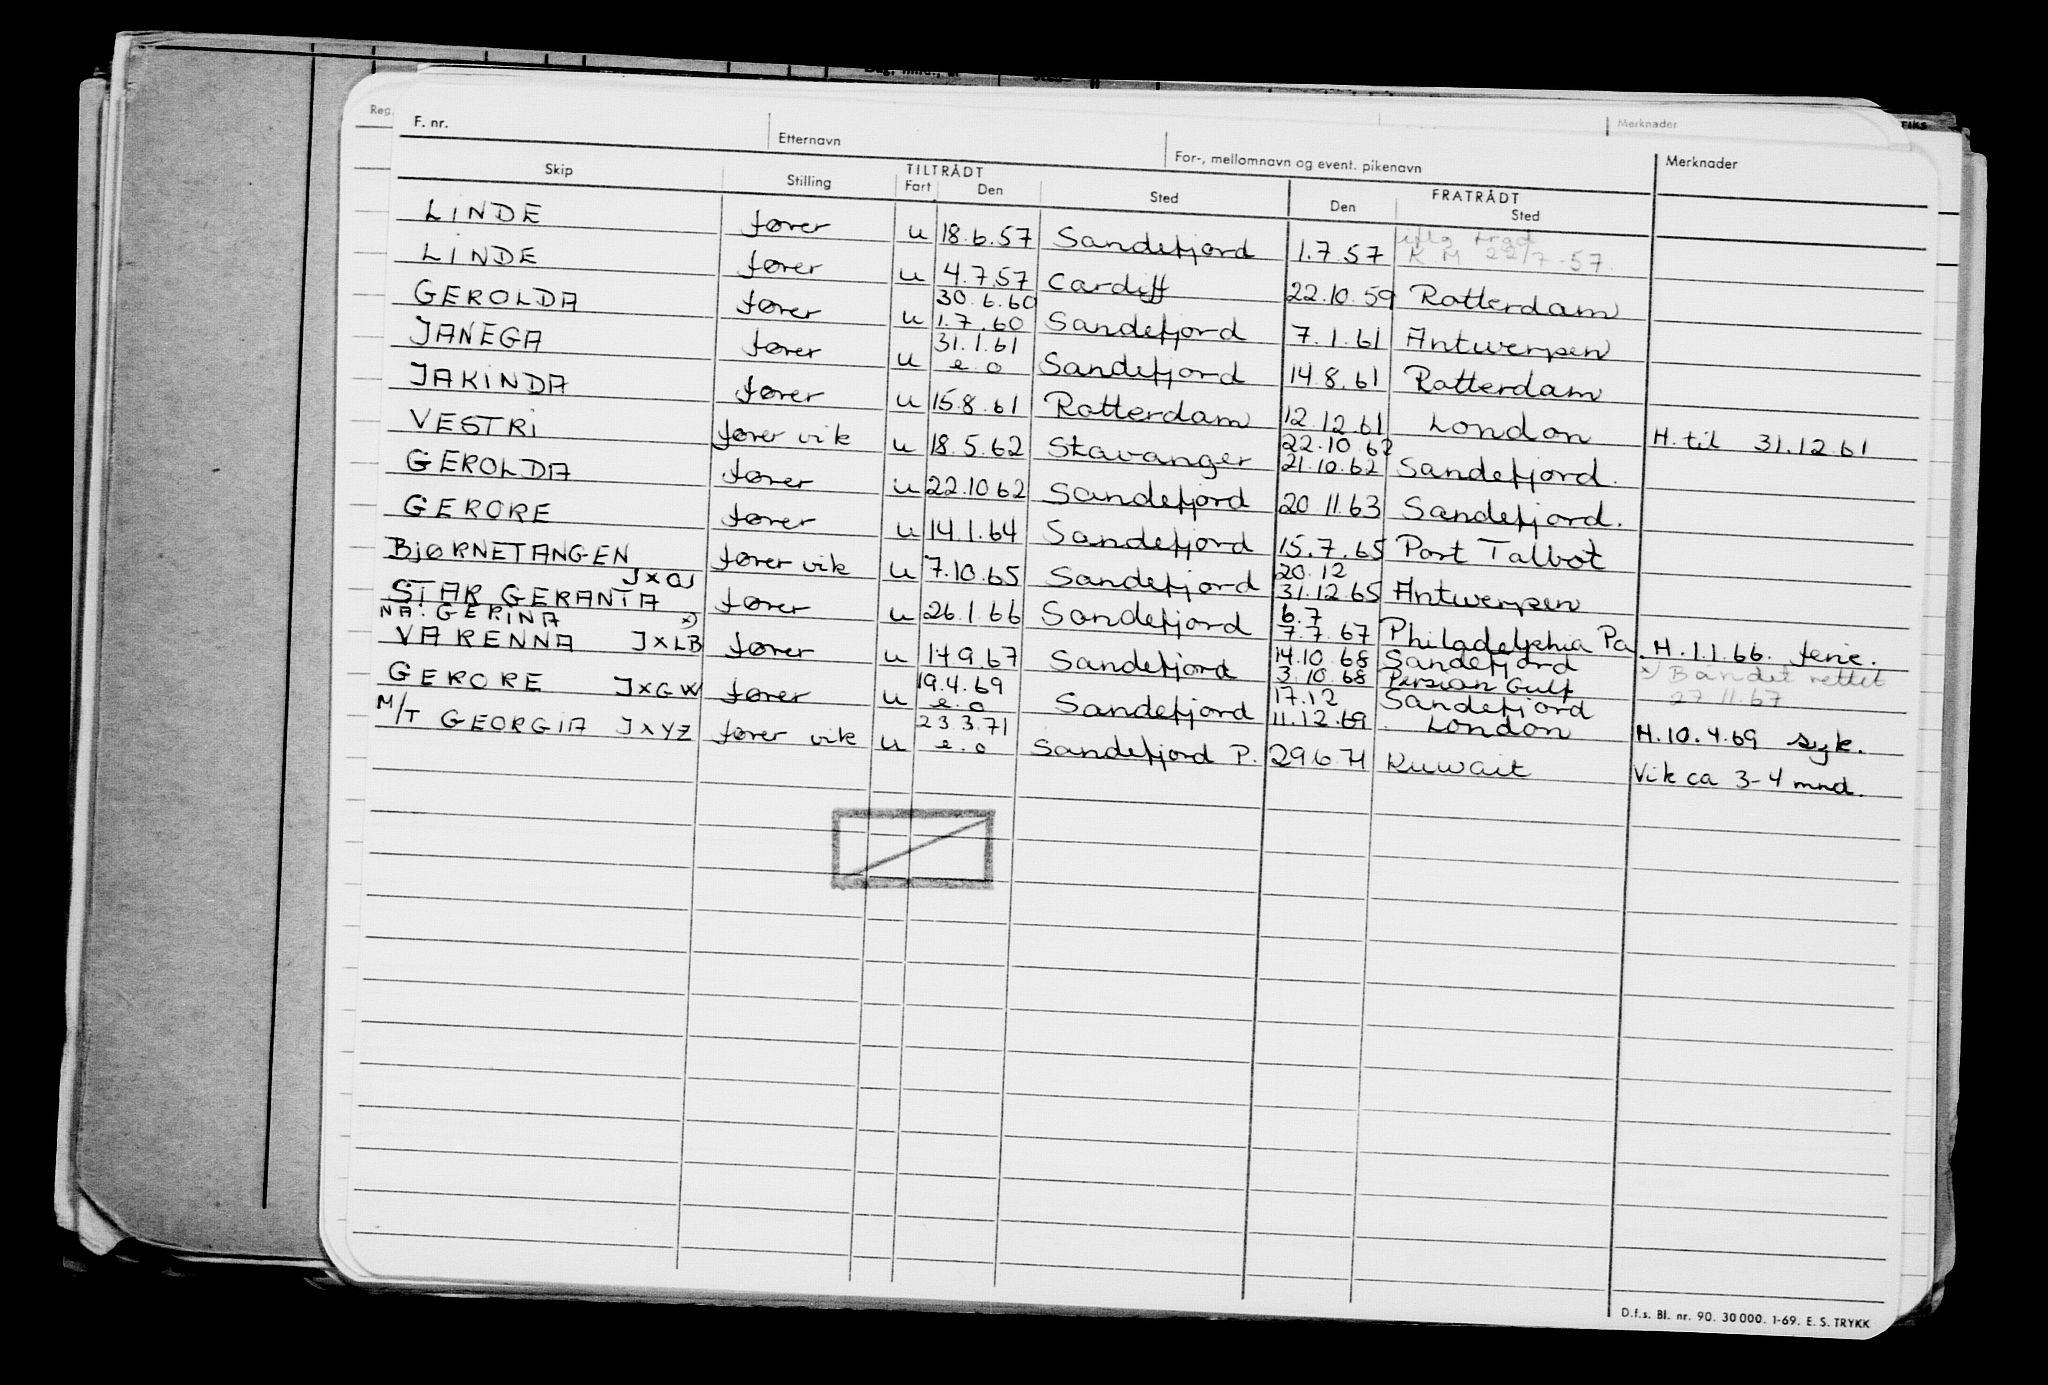 Reg.
Merknader
F. nr.
Etternavn
For-, mellomnavn og event. pikenavn
Merknader
Skip
Stilling
TILTRÅDT
Fart
Den
Sted
FRATRÅDT
Den
Sted
LINDE fører u 18.6.57 Sandefjord 1.7.57
K M 22/7-57.
LINDE fører u 4.7.57 Cardiff 22.10.59 Rotterdam
GEROLDA fører u 30.6.60 1.7.60 Sandefjord 7.1.61 Antwerpen
JANEGA fører u 31.1.61 e.o Sandefjord 14.8.61 Rotterdam
JAKINDA fører u 15.8.61 Rotterdam 12.12.61 London H. til 31.12.61
VESTRI fører vik u 18.5.62 Stavanger 22.10.62 21.10.62 Sandefjord.
GEROLDA fører u 22.10 62 Sandefjord 20 11.63 Sandefjord.
GERORE fører u 14.1.64 Sandefjord 15.7.65 Port Talbot
BJØRNETANGEN fører vik u 7.10.65 Sandefjord 20.12 31.12.65 Antwerpen
JXOJ
STAR GERANTA fører u 26.1.66 Sandefjord 6.7 7.7.67 Philadelphia Pa. H. 1.1.66. ferie.
NA. GERINA x)
x) Båndet rettet 27.11.67
VARENNA JXLB fører u 14.9.67 Sandefjord 14.10.68 Sandefjord
3.10.68 Persian Gulf
GERORE JXGW fører u 19.4.69 e.o Sandefjord 17.12 Sandefjord
11.12.69 London H. 10.4.69 syk.
M/T GEORGIA JXYZ fører vik u 23.3.71 e.o Sandefjord P. 29.6.71 Kuwait Vik ca 3-4 mnd.
D.f.s. Bl. nr. 90. 30 000. 1-69. E. S. TRYKK